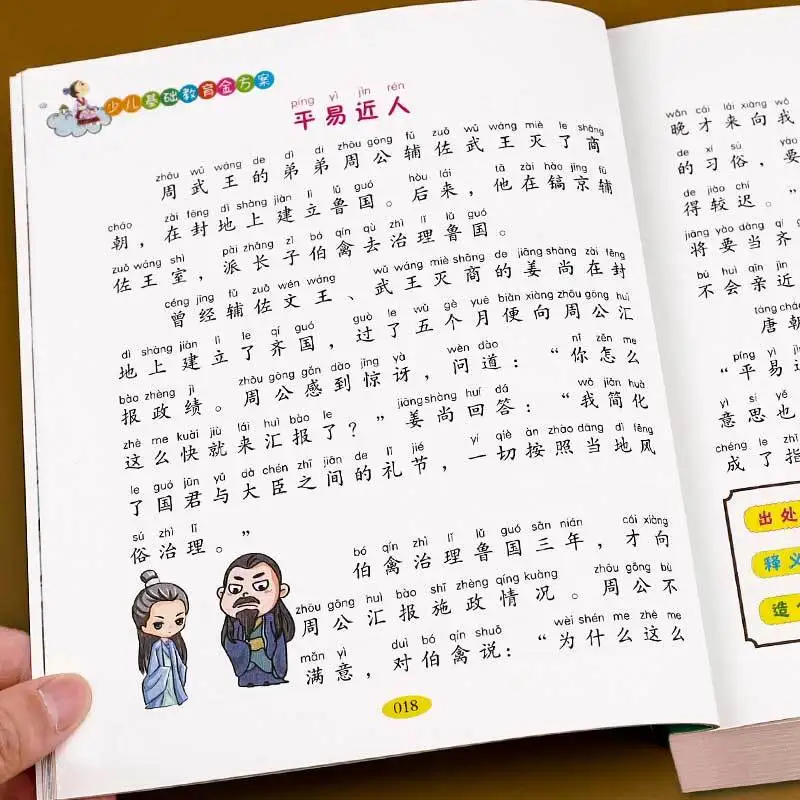 少儿基础教育金方案
píng yì jìn rén
平易近人
zhōu wǔ wáng de dì di zhōu gōng fǔ zuǒ wǔ wáng miè le shāng
周武王的弟弟周公辅佐武王灭了商
cháo zài fēng dì shàng jiàn lì lǔ guó hòu lái tā zài hào jīng fǔ
朝，在封地上建立鲁国。后来，他在镐京辅
zuǒ wáng shì pài zhǎng zǐ bó qín qù zhì lǐ lǔ guó
佐王室，派长子伯禽去治理鲁国。
céng jīng fǔ zuǒ wén wáng wǔ wáng miè shāng de jiāng shàng zài fēng
曾经辅佐文王、武王灭商的姜尚在封
dì shàng jiàn lì le qí guó guò le wǔ gè yuè biàn xiàng zhōu gōng huì
地上建立了齐国，过了五个月便向周公汇
bào zhèng jì zhōu gōng gǎn dào jīng yà wèn dào nǐ zěn me
报政绩。周公感到惊讶，问道：“你怎么
zhè me kuài jiù lái huì bào le jiāng shàng huí dá wǒ jiǎn huà
这么快就来汇报了？”姜尚回答：“我简化
le guó jūn yǔ dà chén zhī jiān de lǐ jié yí qiè àn zhào dāng dì fēng
了国君与大臣之间的礼节，一切按照当地风
sú zhì lǐ
俗治理。”
bó qín zhì lǐ lǔ guó sān nián cái xiàng
伯禽治理鲁国三年，才向
zhōu gōng huì bào shī zhèng qíng kuàng zhōu gōng bù
周公汇报施政情况。周公不
mǎn yì duì bó qín shuō wèi shén me zhè me
满意，对伯禽说：“为什么这么
018
wǎn cái lái xiàng wǒ
晚才来向我
de xí sú yào
的习俗，要
de jiào chí
得较迟。”
jiāng yào dāng qí
将要当齐
bú huì qīn jìn
不会亲近
táng cháo
唐朝
píng yì
“平易
yì si yě
意思也
chéng le zhǐ
成了指
出处
释义
造